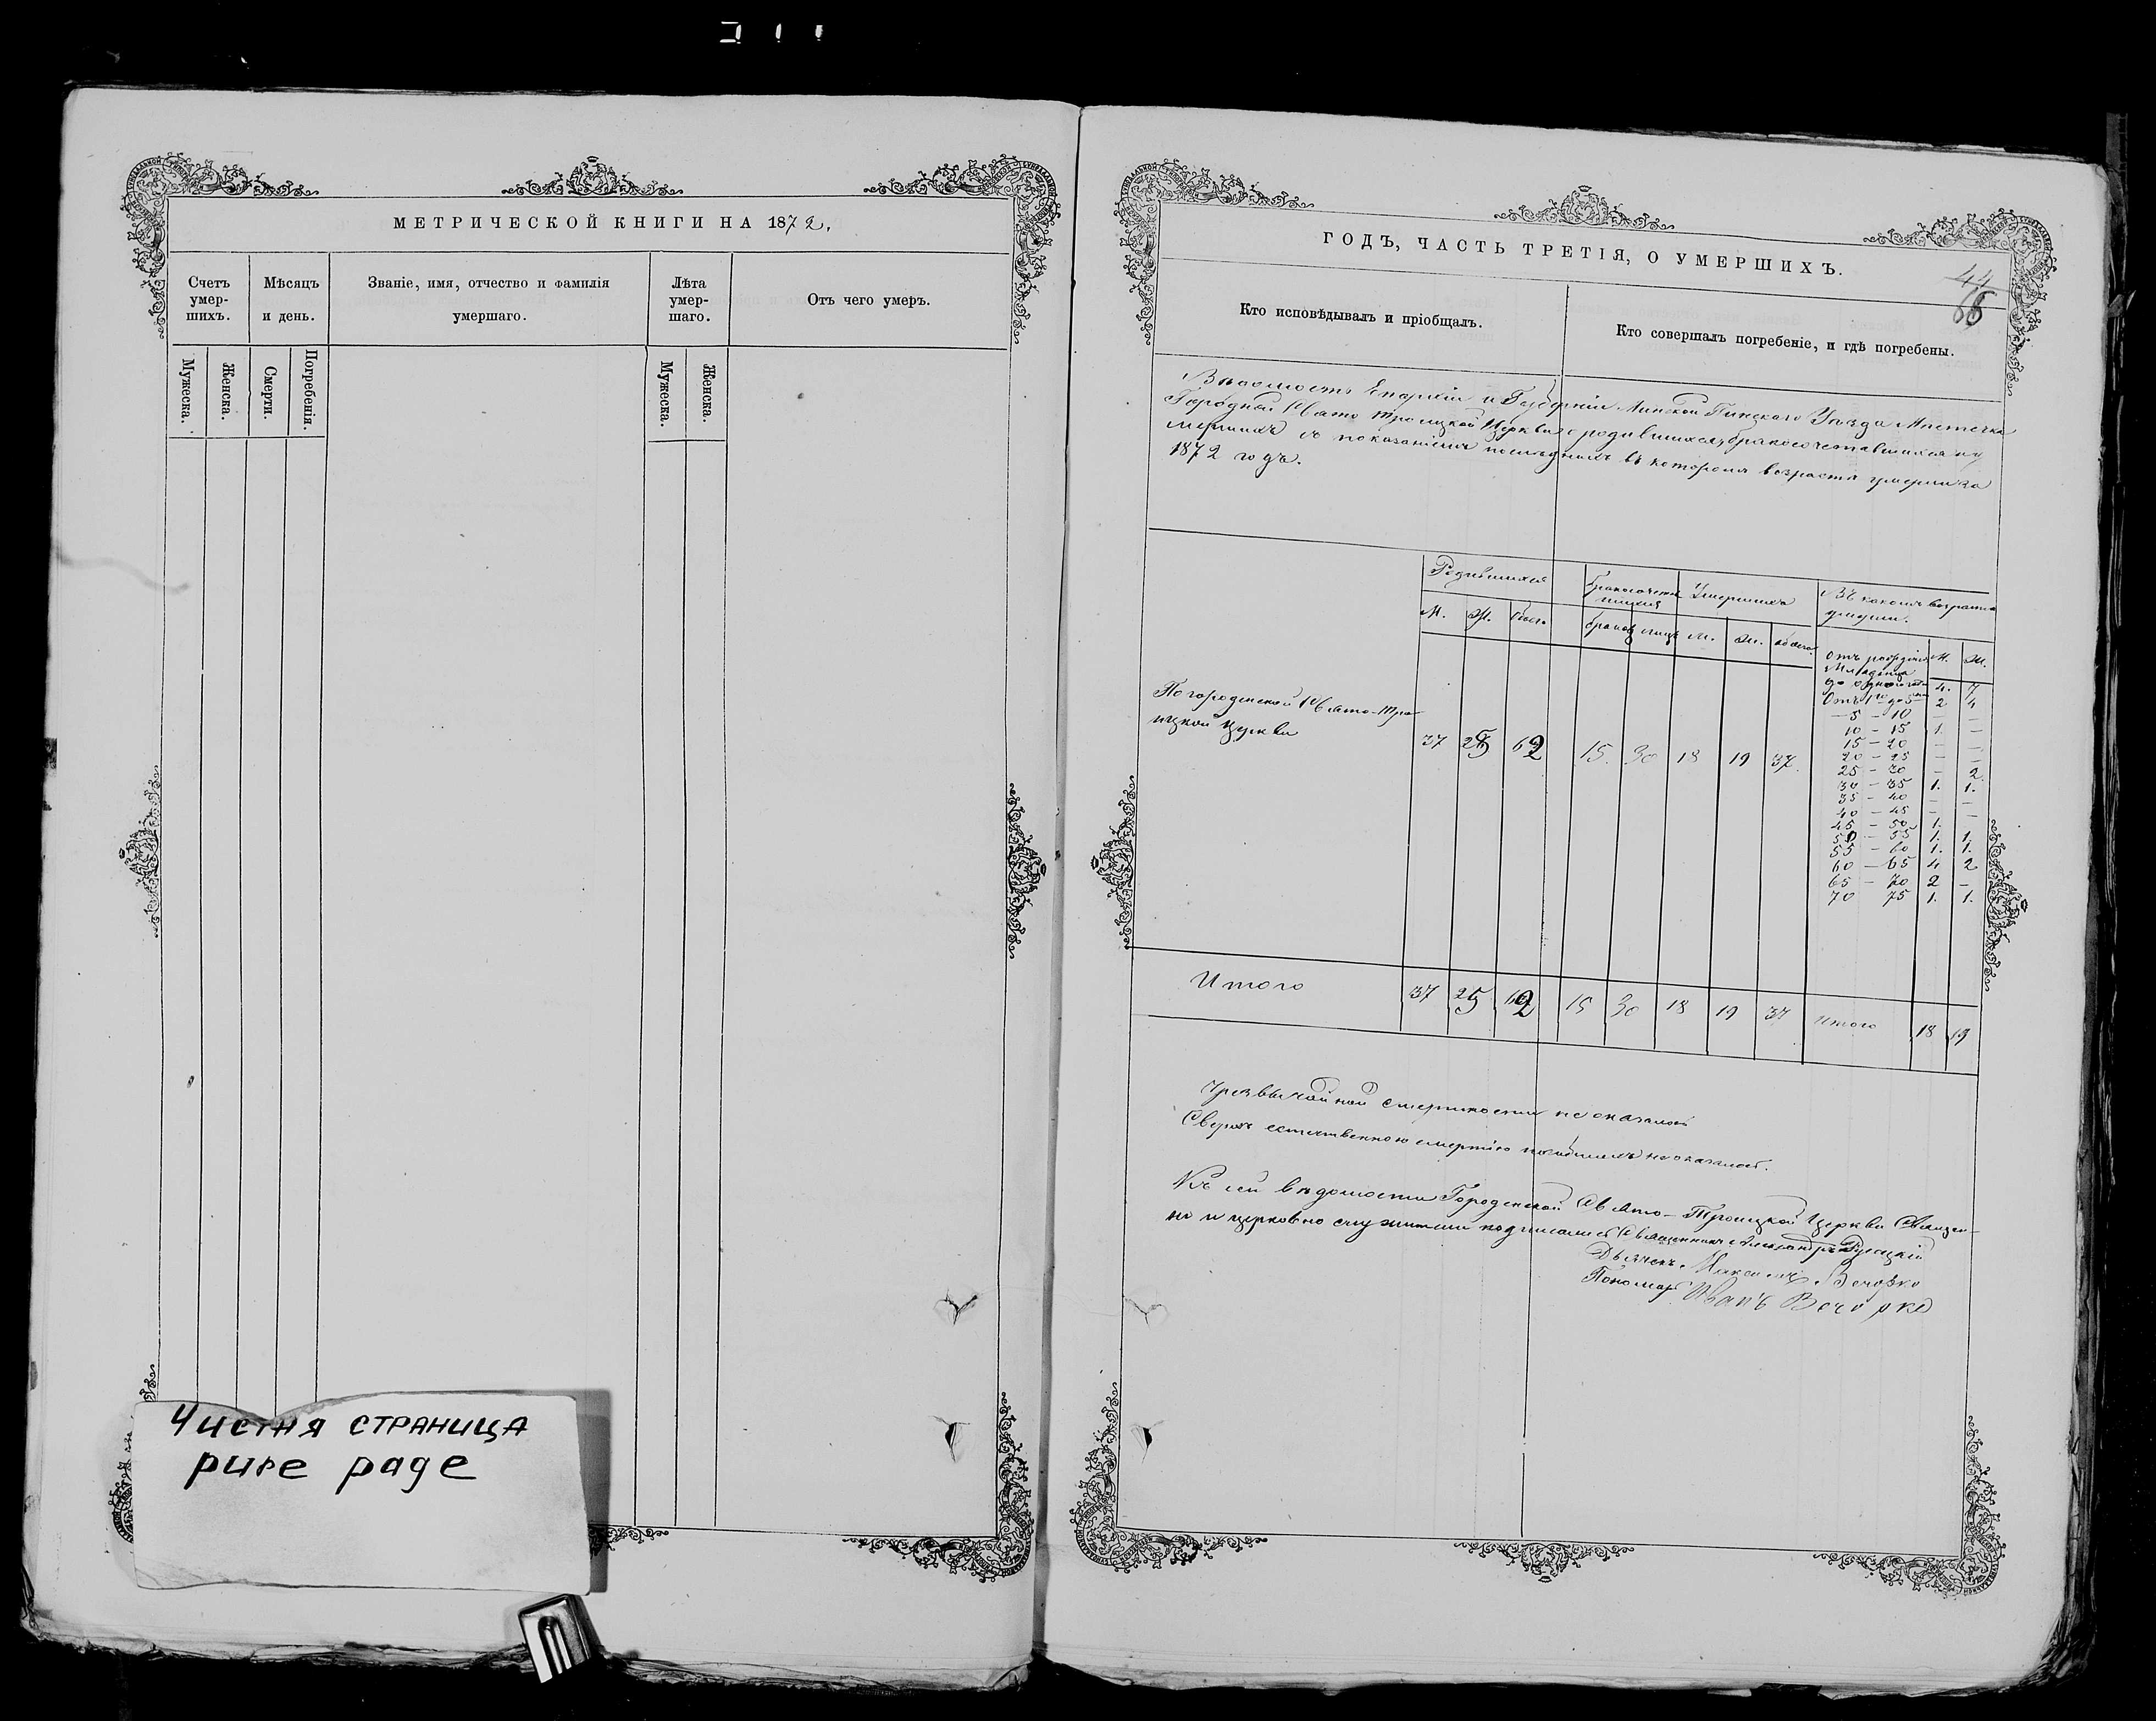 МЕТРИЧЕСКОЙ КНИГИ НА 1872,
Счетъ умер-шихъ.
Мѣсяцъ и день.
Званіе, имя, отчество и фамилія умершаго.
Лѣта умер-шаго.
Отъ чего умеръ.
Мужеска.
Женска.
Смерти.
Погребенія.
Мужеска.
Женска.
Чистая страница
pure page
ГОДЪ, ЧАСТЬ ТРЕТІЯ, О УМЕРШИХЪ.
44
Кто исповѣдывалъ и пріобщалъ.
Кто совершалъ погребеніе, и гдѣ погребены.
Вѣдомость Епархіи и Губерніи Минской Пинскаго Уѣзда Мѣстечка
Городной Свято Троицкой Церкви о родившихся, бракосочетавшихся и у
мершихъ съ показаніемъ последнихъ въ которомъ возрастѣ умерли за
1872 годъ.
Родившихся
Умершихъ
Въ какомъ возрастѣ
умерли.
М. Ж. обоего
браковъ лицъ М. Ж. обоего
Отъ рожденія М. Ж.
Младенца
до одного 4. 7
Отъ 1 до 5 2 4
— 5 — 10 — —
10 — 15 1. —
15 — 20 — —
20 — 25 — —
25 — 30 — 2.
30 — 35 1. 1.
35 — 40 — —
40 — 45 — —
45 — 50 1.
50 — 55 1. 1.
55 — 60 1. 1.
60 — 65 4 2
65 — 70 2 —
70 75 1. 1.
По городенской Свято-Тро
ицкой Церкви
37 25 62 15. 30 18 19 37.
Итого 37 25 62 15 30 18 19 37 Итого 18 19
Чрезвычайной смертности не оказалось
Сверхъ естественною смертію погибшихъ не оказалось.
Къ сей вѣдомости Городенской Свято-Троицкой Церкви Священ-
но и церковно служители подписались Священникъ Александръ
Дьячекъ Максимъ Вечорко
Пономарь Иванъ Вечорко